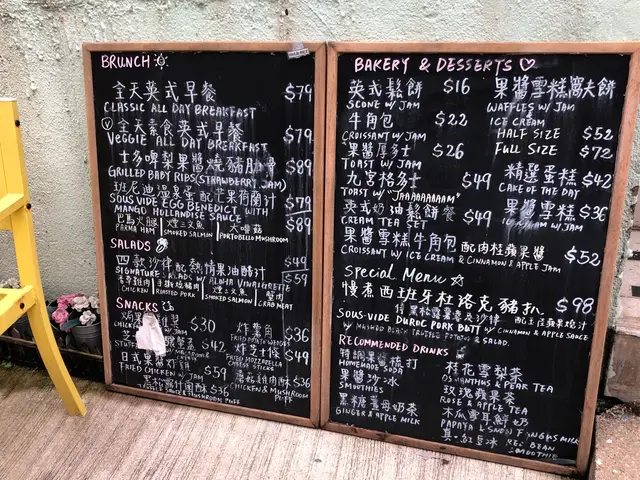 BRUNCH
全天英式早餐 $79
CLASSIC ALL DAY BREAKFAST
Ⓥ 全天素食英式早餐 $79
VEGGIE ALL DAY BREAKFAST
士多啤梨果醬燒豬肋骨 $89
GRILLED BABY RIBS (STRAWBERRY JAM)
班尼迪溫泉蛋配芒果荷蘭汁
SOUS VIDE EGG BENEDICT WITH $79
MANGO HOLLANDISE SAUCE $89
巴馬火腿 煙三文魚 大啡菇
PARMA HAM SMOKED SALMON PORTOBELLO MUSHROOM
SALADS
四款沙律配熱情果油醋汁 $49
SIGNATURE SALADS W/ ALOHA VINAIGRETTE $59
香草雞肉 手撕燒豬肉 煙三文魚 蟹肉
CHICKEN ROASTED PORK SMOKED SALMON CRAB MEAT
SNACKS
CHICKEN $30
炸薯角 $36
FRIED POTATO WEDGES
$42
炸芝士條 $49
FRIED MOZZARELLA CHEESE STICKS
日式果醬炸雞 $59
FRIED CHICKEN W/ JAM
$36
蘑菇雞肉酥 $36
CHICKEN & MUSHROOM PUFF
MUSHROOM PUFF
BAKERY & DESSERTS ♡
英式鬆餅 $16
SCONE W/ JAM
牛角包 $22
CROISSANT W/ JAM
果醬厚多士 $26
TOAST W/ JAM
九宮格多士 $49
TOAST W/ "JAAAAAAAAM"
英式奶油鬆餅餐 $49
CREAM TEA SET
果醬雪糕牛角包 配肉桂蘋果醬 $52
CROISSANT W/ ICE CREAM & CINNAMON & APPLE JAM
果醬雪糕窩夫餅
WAFFLES W/ JAM
ICE CREAM
HALF SIZE $52
FULL SIZE $72
精選蛋糕 $42
CAKE OF THE DAY
果醬雪糕 $36
ICE CREAM W/ JAM
Special Menu ☆
慢煮西班牙杜洛克豬扒 $98
SOUS-VIDE DUROC PORK BUTT W/ CINNAMON & APPLE SAUCE
W/ MASHED BLACK TRUFFLE POTATO & SALAD.
RECOMMENDED DRINKS
特調果醬梳打
HOMEMADE SODA
果醬沙冰
SMOOTHIES
黑糖薑母奶茶
GINGER & APPLE MILK
桂花雪梨茶
OSMANTHUS & PEAR TEA
玫瑰蘋果茶
ROSE & APPLE TEA
木瓜雪耳鮮奶
PAPAYA & SNOW FUNGUS MILK
真·紅豆冰 RED BEAN SMOOTHIE